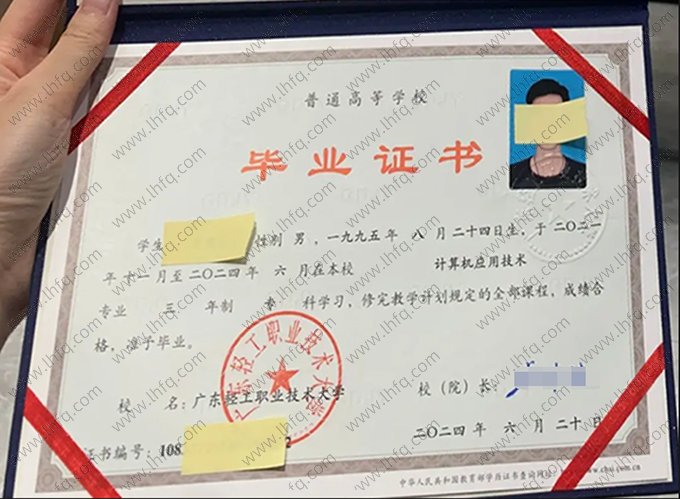 普通高等学校
毕业证书
学生 性别 男，一九九五年 八 月二十四日生，于二〇二一
年十一月至二〇二四年 六 月在本校 计算机应用技术
专业 三 年制 专 科学习，修完教学计划规定的全部课程，成绩合
格，准予毕业。
广东轻工职业技术大学
校 名：广东轻工职业技术大学 校（院）长：
二〇二四 年 六 月 二十 日
证书编号：108 2
中华人民共和国教育部学历证书查询网址：
www.lhfq.com